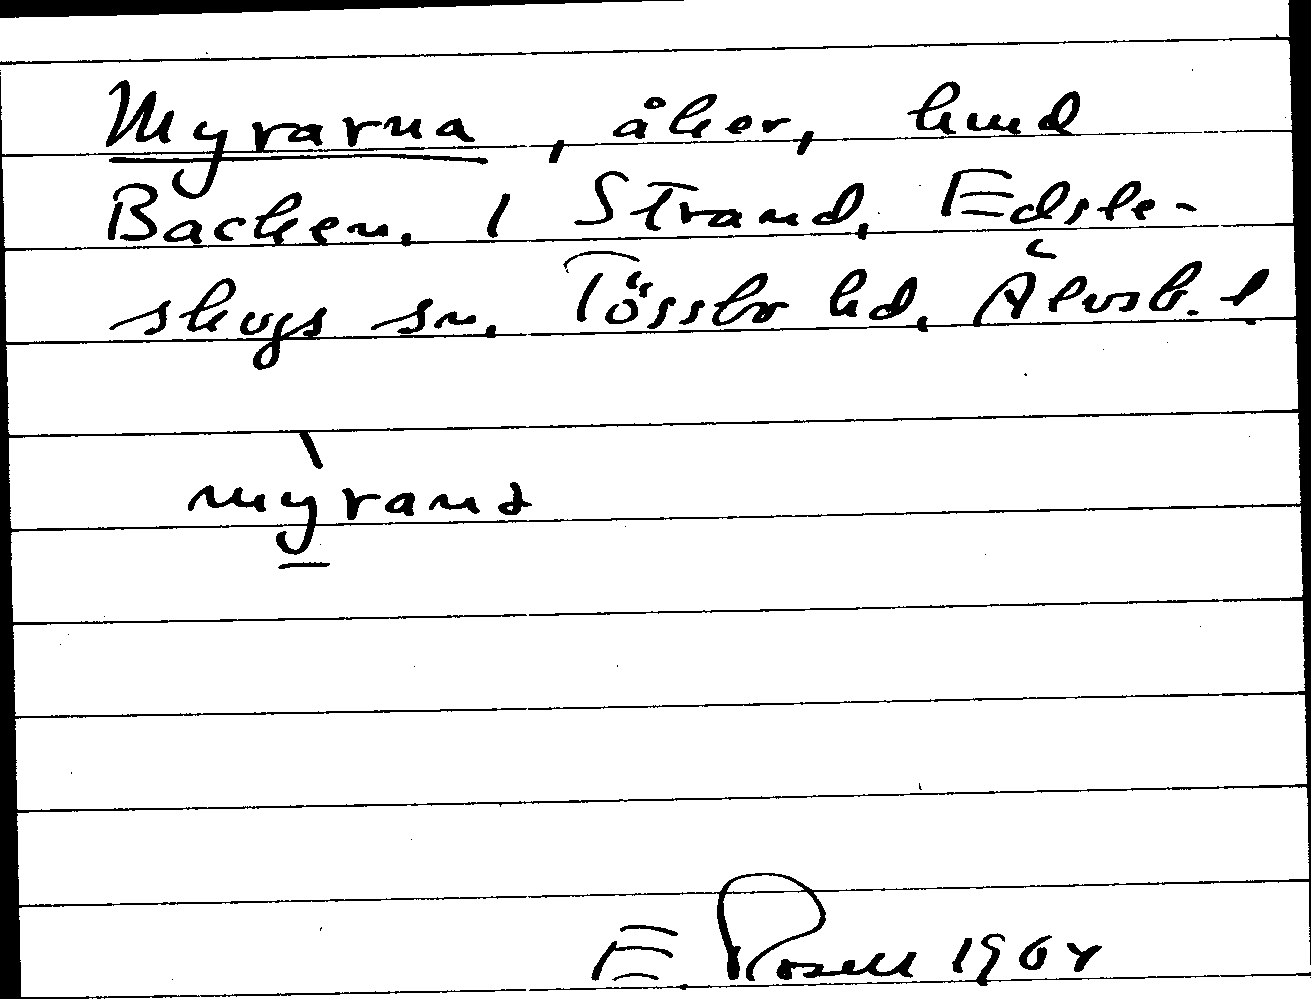 Myrarna, åker, hmd
Backen. 1 Strand, Edsle-
skogs sn. Tössbo hd. Älvsb. l.
mỳrana
E Rosell 1964